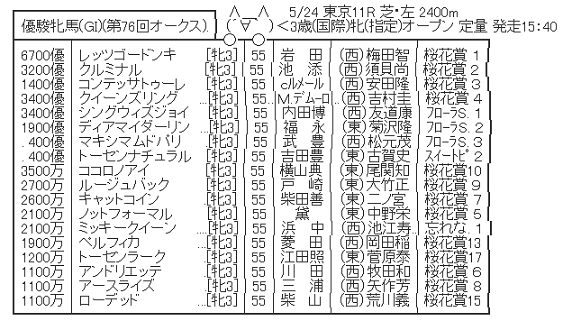 優駿牝馬(GI)(第76回オークス) (´∀｀) <3歳(国際)牝(指定)オープン 定量 発走15:40
5/24 東京11R 芝・左 2400m
6700優 レッツゴードンキ [牝3] 55 岩田 (西)梅田智 桜花賞 1
3200優 クルミナル [牝3] 55 池添 (西)須貝尚 桜花賞 2
1400優 コンテッサトゥーレ [牝3] 55 cルメール (西)安田隆 桜花賞 3
3400優 クイーンズリング ...[牝3].. 55 ..M.デムーロ.. (西)吉村圭 桜花賞 4
3400優 シングウィズジョイ [牝3] 55 内田博 (西)友道康 フローラS. 1
1900優 ディアマイダーリン ...[牝3] 55 福永 (東)菊沢隆 フローラS. 2
. 400優 マキシマムドパリ ...[牝3] 55 武豊 (西)松元茂 フローラS. 3
. 400優 トーセンナチュラル [牝3] 55 吉田豊 (東)古賀史 スイートピ 2
3500万 ココロノアイ ...[牝3] 55 横山典 (東)尾関知 桜花賞10
2700万 ルージュバック [牝3] 55 戸崎 (東)大竹正 桜花賞 9
2600万 キャットコイン ...[牝3] 55 柴田善 (東)二ノ宮 桜花賞 7
2100万 ノットフォーマル [牝3] 55 黛 (東)中野栄 桜花賞 5
2100万 ミッキークイーン ....[牝3] 55 浜中 (西)池江寿.. 忘れな. 1
1900万 ベルフィカ ...[牝3] 55 菱田 (西)岡田稲 桜花賞13
1200万 トーセンラーク [牝3] 55 江田照 (東)菅原泰 桜花賞17
1100万 アンドリエッテ [牝3] 55 川田 (西)牧田和 桜花賞 6
1100万 アースライズ ...[牝3] 55 三浦 (西)矢作芳 桜花賞 8
1100万 ローデッド ...[牝3] 55 柴山 (西)荒川義 桜花賞15